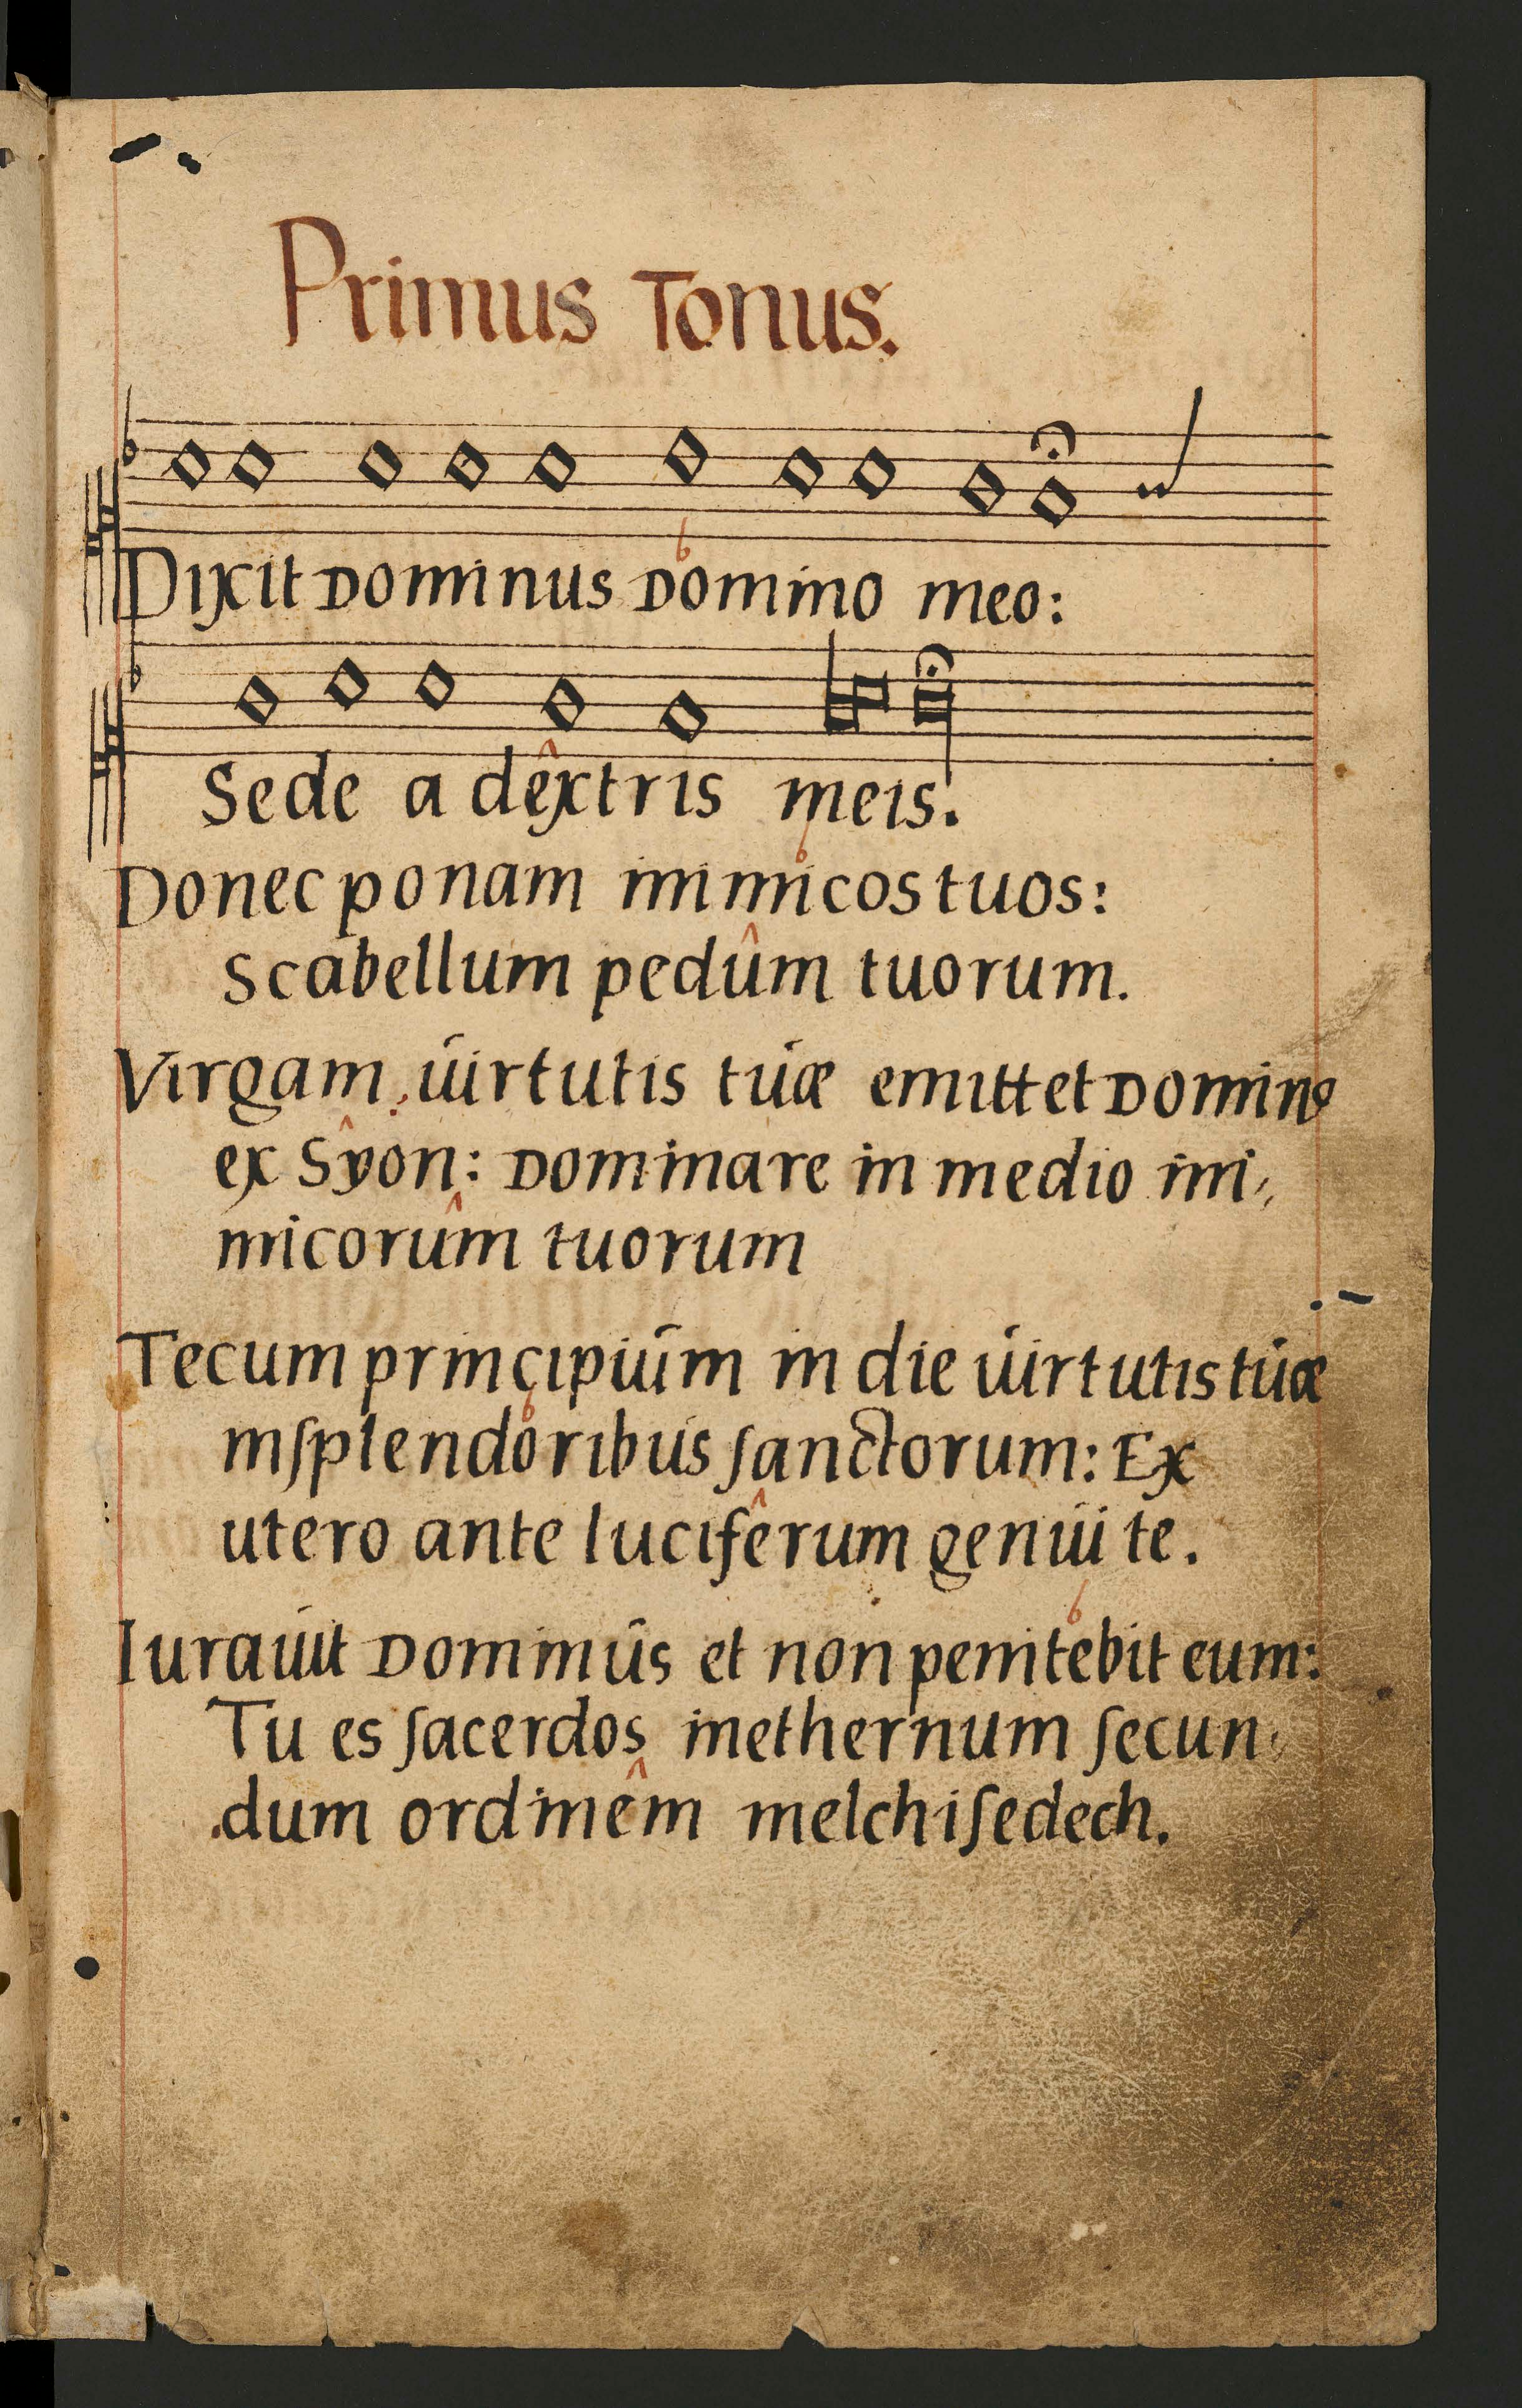 Primus Tonus.
Dixit Dominus Domino meo:
Sede a dêxtris meis.
Donec ponam inimicos tuos:
scabellum pedûm tuorum.
Virgam virtutis tuæ emittet Domin9
ex Sŷon: Dominare in medio ini,
micorûm tuorum
Tecum principium in die virtutis tuæ
in ſplendoribus ſanctorum: Ex
utero ante lucifêrum genui te.
Iurauit Dominus et non penitebit eum:
Tu es ſacerdos in ethernum ſecun,
dum ordinêm melchiſedech.